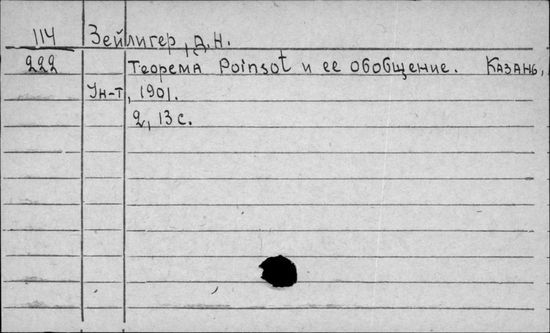 114 Зейлигер, Д.Н.
222 Теорема Poinsot и ее обобщение. Казань,
Ун-т, 1901.
2, 13 с.